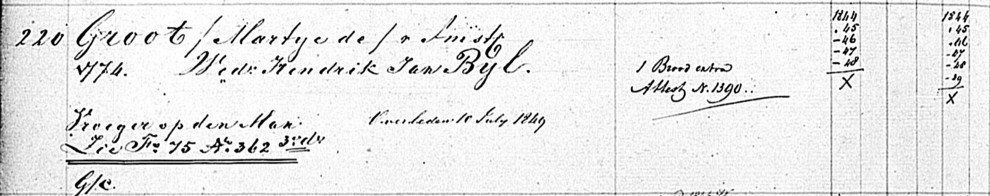 220 Groot / Martye de / v
1774. Wedr. Hendrik Jan Byl.
Vroeger op den Man
Zie Fo. 75 No. 362 3de dr
G/c.
Overleden 10 July 1849
1 Brood extra
Attest N. 1390.
1844
45
-46
-47
-48
X
1844
45
46
-47
-48
-49
X